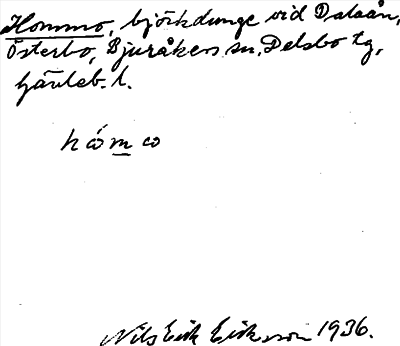 Hommo, björkdunge vid Dalaån,
Österbo, Bjuråkers sn, Delsbo tg,
Gävleb. l.
Nils Erik Eriksson 1936.